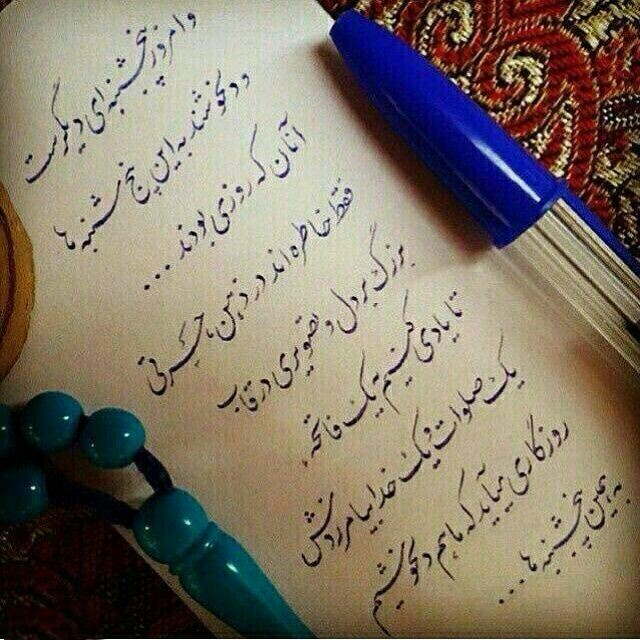 و امروز پنجشنبه ای دیگرست
و دلخوشند به این پنج شنبه ها
آنان که روزی بودند ...
فقط خاطره اند در ذهن ها حسرتی
بزرگ بر دل و تصویری در قاب
تا یادی کنیم به یک فاتحه.
یک صلوات و یک خدا بیامرزدش
روزگاری میآید که ما هم دلخوشیم
به همین پنجشنبه ها ...